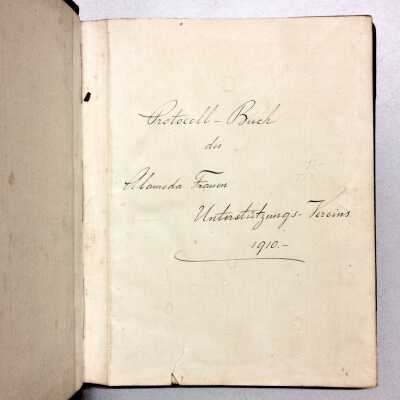 Protocoll-Buch
des
Alameda Frauen
Unterstützungs-Vereins
1910.-